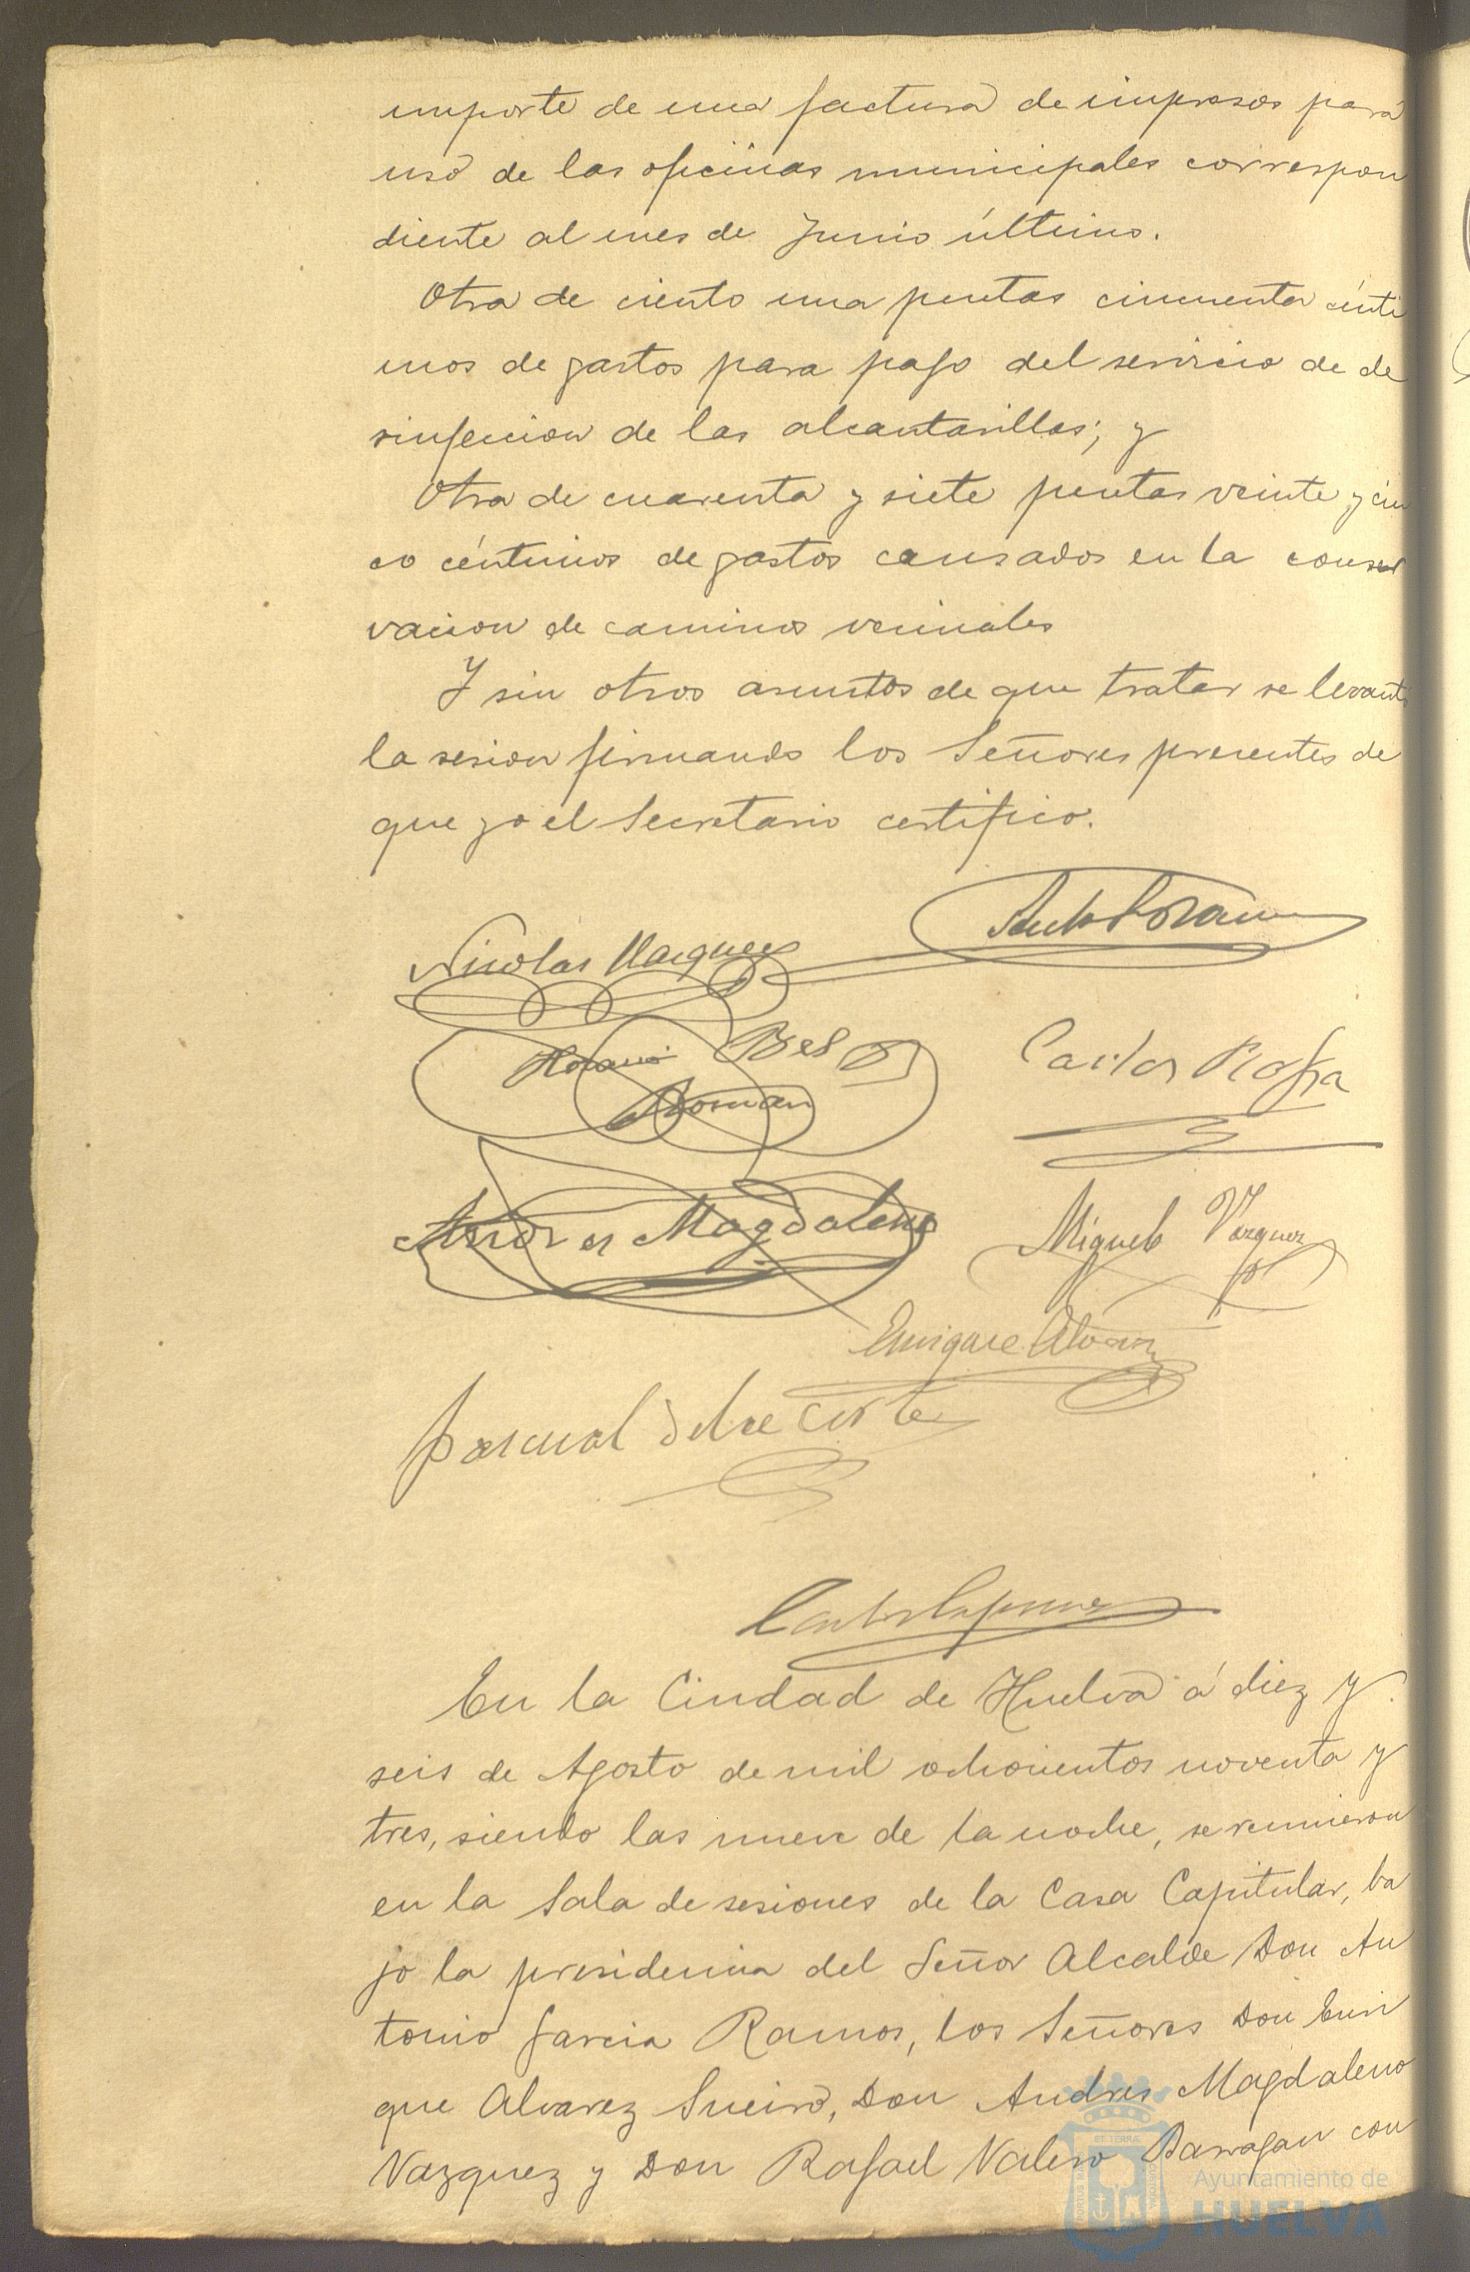 importe de una factura de impresos para
uso de las oficinas municipales correspon
diente al mes de Junio último.
Otra de ciento una pesetas cincuenta cénti
mos de gastos para pago del servicio de de
sinfeccion de las alcantarillas; y
Otra de cuarenta y siete pesetas veinte y cin
co céntimos de gastos causados en la conser
vacion de caminos vecinales
Y sin otros asuntos de que tratar se levantó
la sesion firmando los Señores presentes de
que yo el Secretario certifico.
Nicolás Vazquez
Horacio Bel
Roman
Carlos
Andres Magdaleno
Miguel Vazquez
Enrique Alvarez
Pascual de la Corte
En la Ciudad de Huelva á diez y
seis de Agosto de mil ochocientos noventa y
tres, siendo las nueve de la noche, se reunieron
en la Sala de sesiones de la Casa Capitular, ba
jo la presidencia del Señor Alcalde Don An
tonio Garcia Ramos, los Señores Don Enri
que Alvarez Sueiro, Don Andres Magdaleno
Vazquez y Don Rafael Valero Barragan con
Ayuntamiento de
HUELVA